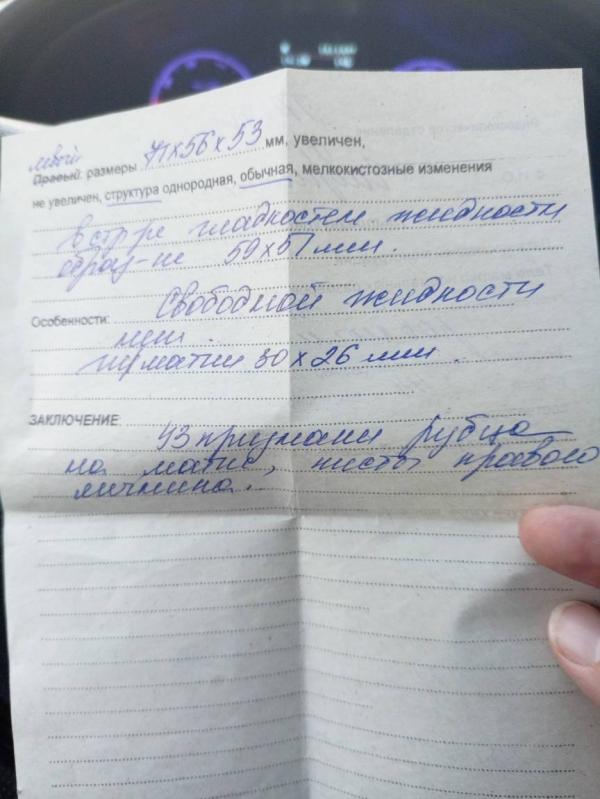 левый
Правый: размеры 71х56х53 мм, увеличен,
не увеличен, структура однородная, обычная, мелкокистозные изменения
в стр-ре гладкостен. жидкостн
образ-ие 59х51 мм.
Особенности: Свободной жидкости
нет.
ш/матки 30х26 мм.
ЗАКЛЮЧЕНИЕ: УЗ признаки рубца
на матке, кисты правого
яичника.